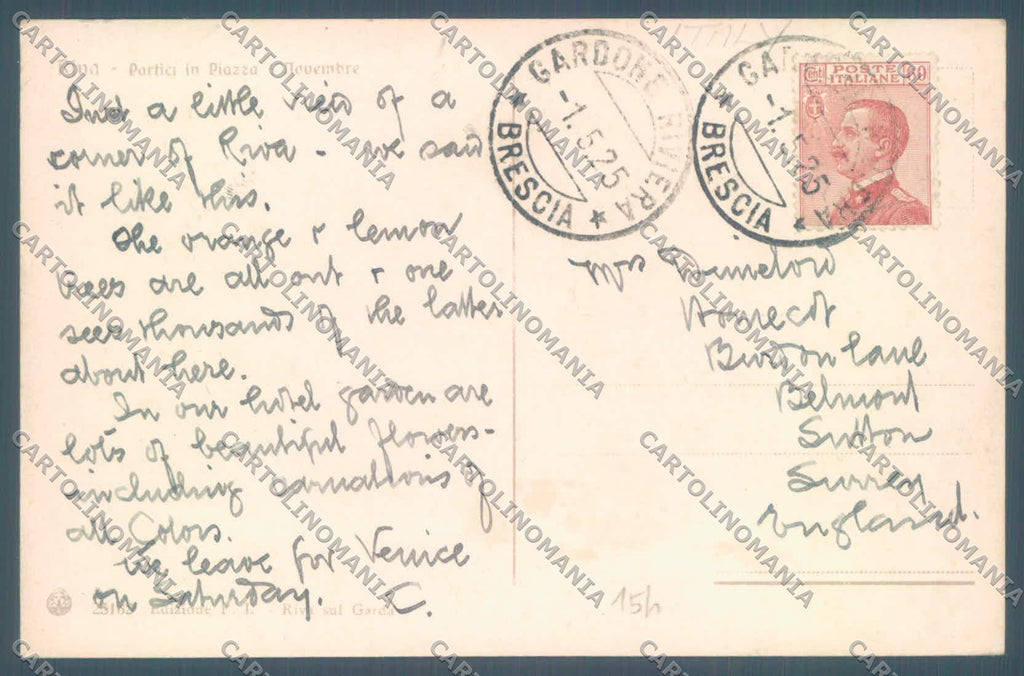 Riva - Portici in Piazza Novembre
Just a little view of a
corner of Riva - we saw
it like this.
The orange & lemon
trees are all out & one
sees thousands of the latter
about here.
In our hotel garden are
lots of beautiful flowers -
including carnations of
all Colors.
We leave for Venice
on Saturday. C.
Edizione - Riva sul Garda
ITALY
GARDONE RIVIERA
-1.5.25
★ BRESCIA ★
GARDONE RIVIERA
-1.5.25
★ BRESCIA ★
Cent
POSTE
ITALIANE
Mrs
Burdon Lane
Belmont
Sutton
Surrey
England.
15/1
CARTOLINOMANIA